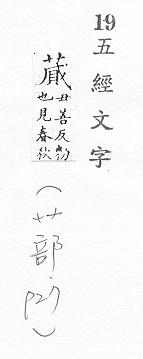 19五經文字
蕆
丑善反勑
也見春秋
(艹部,